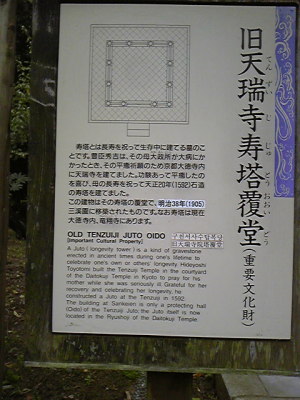 旧天瑞寺寿塔覆堂（重要文化財）
てんずいじ じゅとうおおいどう
寿塔とは長寿を祝って生存中に建てる墓のこ
とです。豊臣秀吉は、その母大政所が大病にか
かったとき、その平癒祈願のため京都大徳寺内
に天瑞寺を建てました。功験あって平癒したの
を喜び、母の長寿を祝って天正20年(1592)石造
の寿塔を建てました。
この建物はその寿塔の覆堂で、明治38年(1905)
三溪園に移築されたものです。なお寿塔は現在
大徳寺内、竜翔寺にあります。
OLD TENZUIJI JUTO OIDO
[Important Cultural Property]
旧天瑞寺寿塔覆堂
A Juto ( longevity tower ) is a kind of gravestone
erected in ancient times during one's lifetime to
celebrate one's own or others' longevity Hideyoshi
Toyotomi built the Tenzuij Temple in the courtyard
of the Daitokuji Temple in Kyoto to pray for his
mother while she was seriously ill Grateful for her
recovery and celebrating her longevity, he
constructed a Juto at the Tenzuiji in 1592.
The building at Sankeien is only a protecting hall
(Oido) of the Tenzuiji Juto the Juto itself is now
located in the Ryushoji of the Daitokuji Temple.